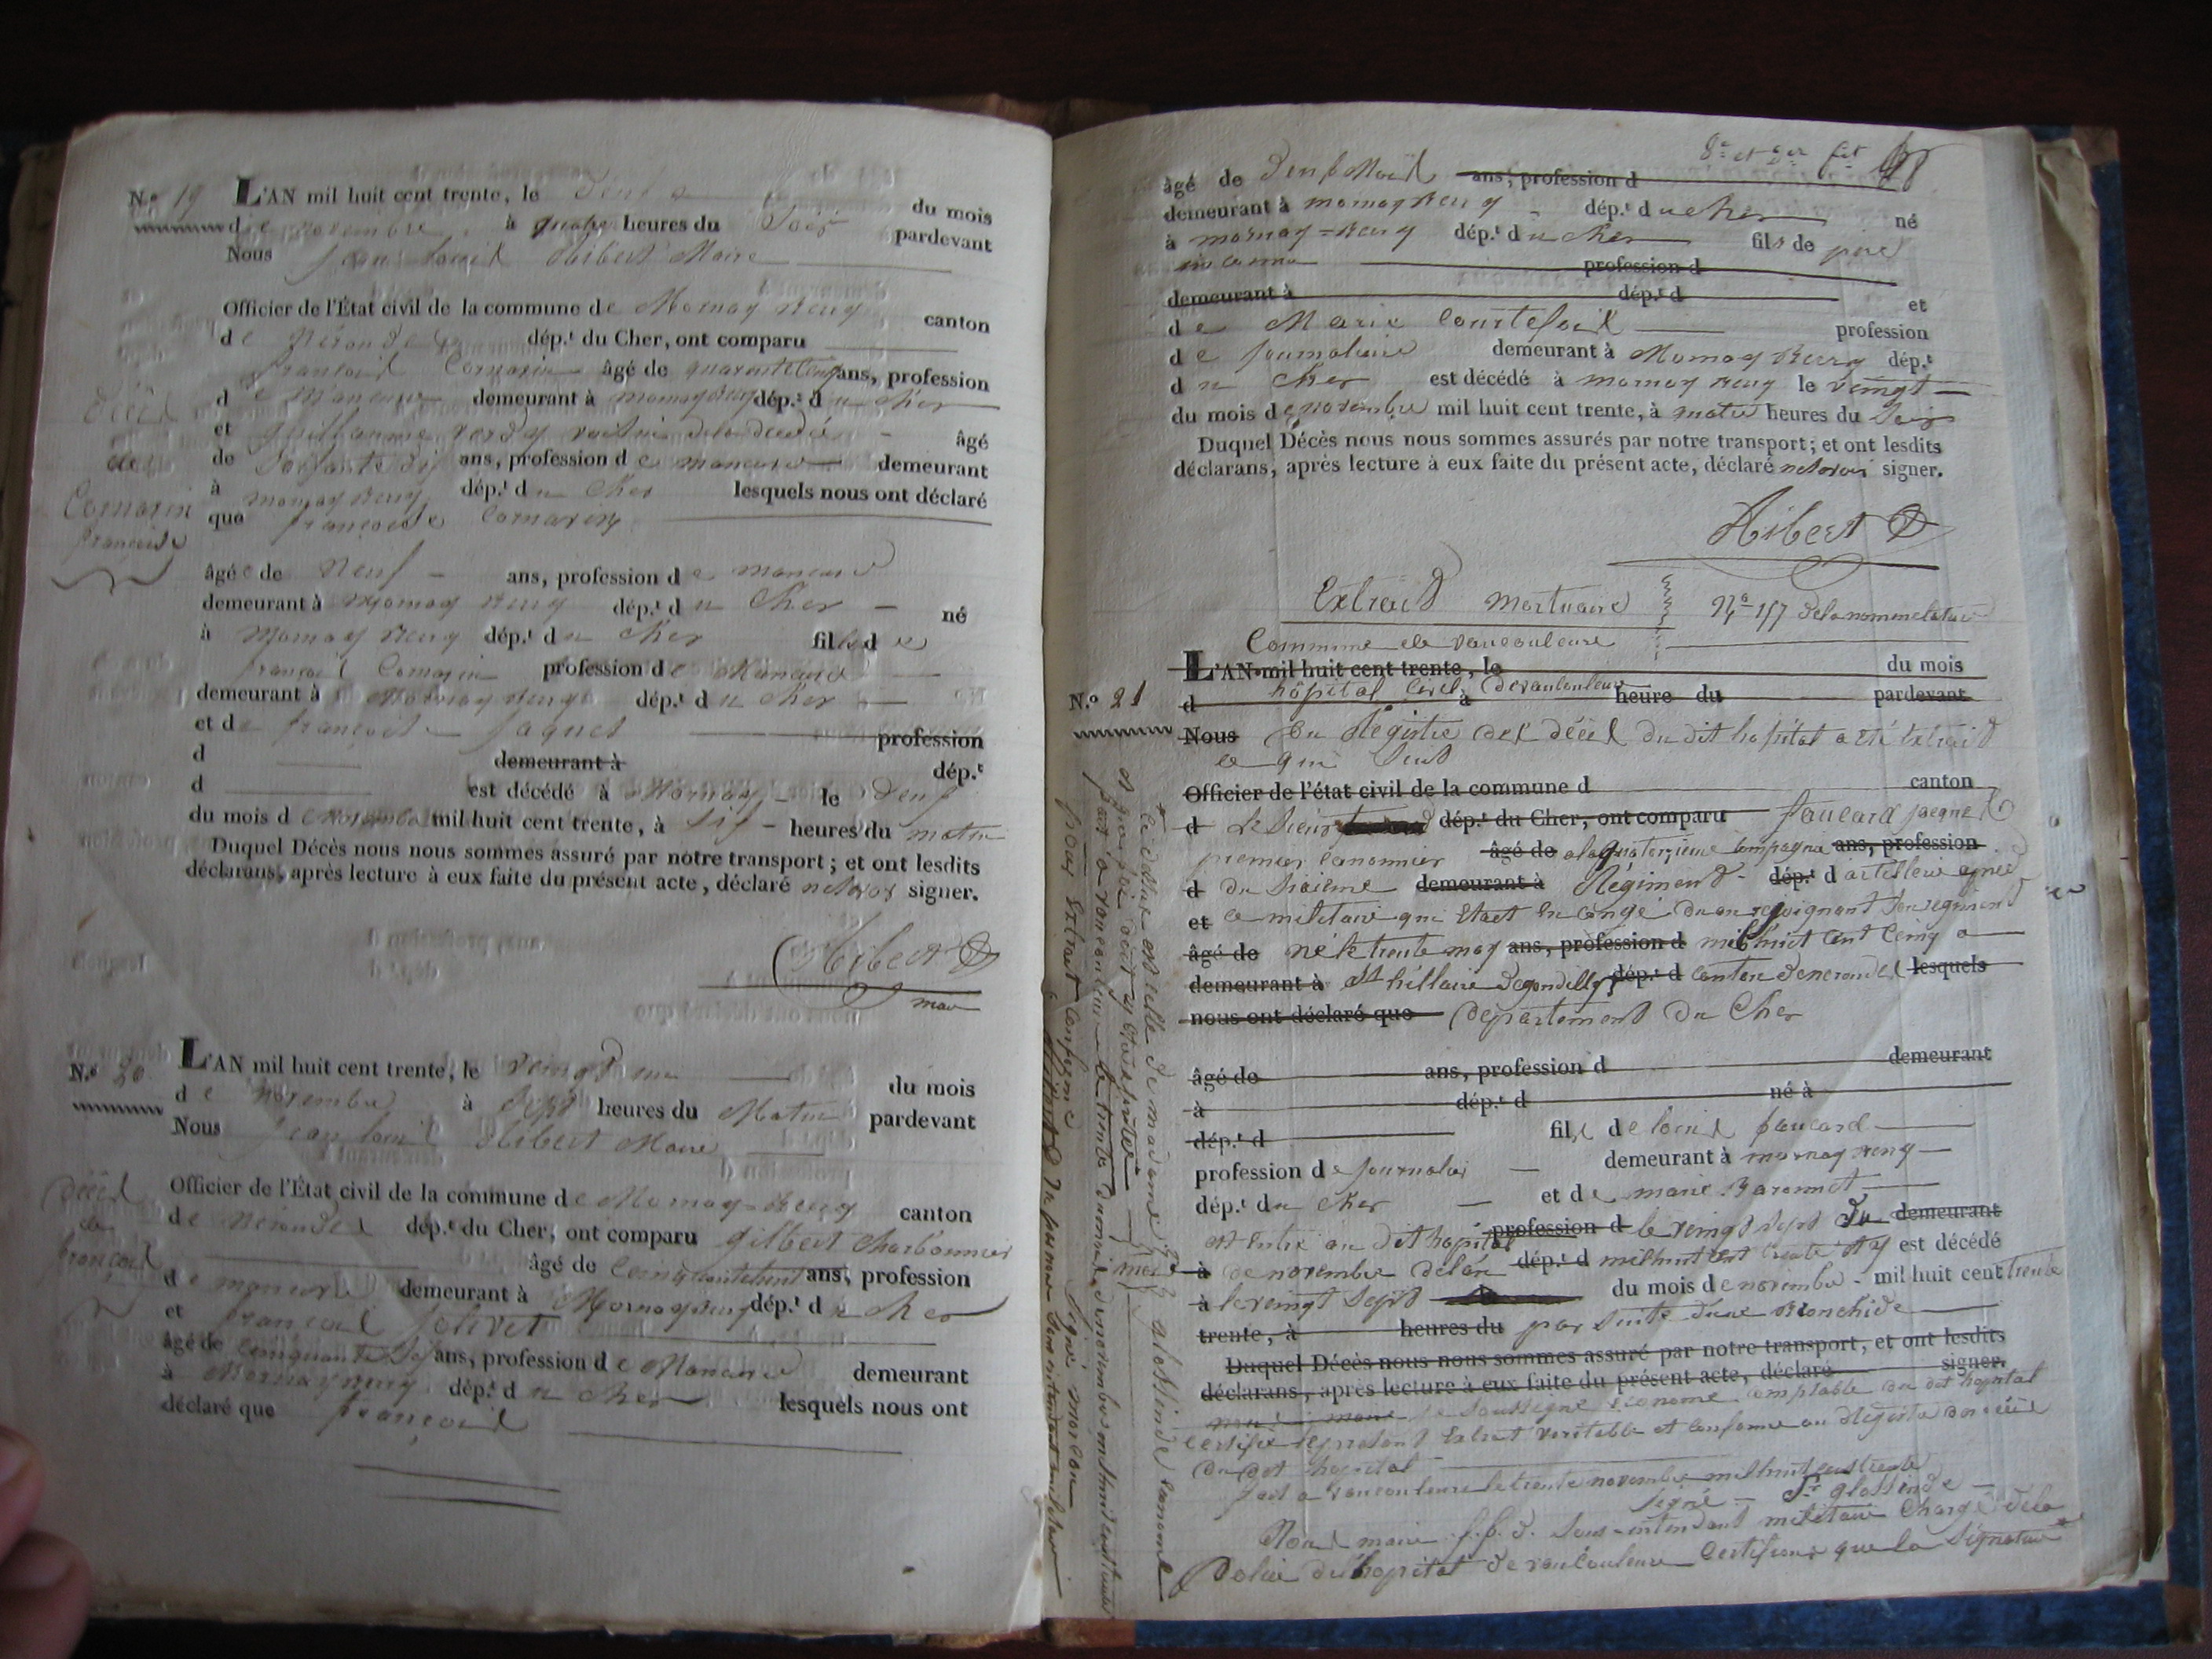 N.º 19 L'AN mil huit cent trente, le deux du mois
de novembre à quatre heures du Soir pardevant
Nous jean Louis hibert Maire
Officier de l'État civil de la commune de Mornay Berry canton
de Nérondes dép.t du Cher, ont comparu
françois Comarin âgé de quarante cinq ans, profession
de Maneuvre demeurant à mornay Berry dép.t du cher
et guillaume verdy voisin de la décédée âgé
de Soixante dix ans, profession de maneuvre demeurant
à mornay Berry dép.t du Cher lesquels nous ont déclaré
que françoise Comarin
Décès
de
Comarin
françoise
âgée de Neuf ans, profession de maneuvre
demeurant à Mornay Berry dép.t du Cher né
à Mornay Berry dép.t du cher fille de
françois Comarin profession de Maneuvre
demeurant à Mornay Berry dép.t du Cher
et de françoise jaquet profession
d demeurant à dép.t
d est décédé à Mornay le deux
du mois de Novembre mil huit cent trente, à Six heures du matin
Duquel Décès nous nous sommes assuré par notre transport ; et ont lesdits
déclarans, après lecture à eux faite du présent acte, déclaré ne savoir signer.
Hibert
mair
N.º 20 L'AN mil huit cent trente, le vingt un du mois
de Novembre à Sept heures du Matin pardevant
Nous jean louis Hibert Maire
Décès
de
françois
Officier de l'État civil de la commune de Mornay-Berry canton
de Nérondes dép.t du Cher, ont comparu gilbert Charbonnier
âgé de Cinquante huit ans, profession
de maneuvre demeurant à Mornay Berry dép.t du cher
et françois jolivet
âgé de Cinquante Six ans, profession de Maneuvre demeurant
à Mornay Berry dép.t du Cher lesquels nous ont
déclaré que françois
8e et der fet
âgé de deux Mois ans, profession d
demeurant à mornay Berry dép.t du cher né
à mornay=Berry dép.t du cher fils de père
inconnu profession d
demeurant à dép.t d et
de Marie Courtefoil profession
de journaliere demeurant à Mornay Berry dép.t
du Cher est décédé à mornay Berry le vingt
du mois de novembre mil huit cent trente, à heures du Soir
Duquel Décès nous nous sommes assurés par notre transport ; et ont lesdits
déclarans, après lecture à eux faite du présent acte, déclaré ne savoir signer.
Hibert
Extrait mortuaire No 157 de la nomenclature
Commune de vaucouleure
L'AN mil huit cent trente, le du mois
N.º 21 d hôpital Civil de vaucouleure à heure du pardevant
Nous Du Régistre des décès du dit hopital a été Extrait
ce qui Suit
Officier de l'état civil de la commune d canton
d Le Sieur dép.t du Cher, ont comparu faucard jacques
premier Canonnier âgé de a la quatorzieme Compagnie ans, profession
d du Sixieme demeurant à Régiment dép.t d artillerie a pied
et ce militaire qui Etait En congé ou en rejoignant Son regiment
âgé de né le trente may ans, profession d mil huit cent Cinq a
demeurant à St hillaire de gondilly dép.t d canton de nerondes lesquels
nous ont déclaré que département du Cher
âgé de ans, profession d demeurant
à dép.t d né à
dép.t d fils de louis faucard
profession de journalier demeurant à mornay Berry
dép.t du cher et de marie Baronnet
est Entré au dit hopital profession d le vingt Sept du demeurant
à de novembre de l'an dép.t d mil huit cent trente est décédé
à le vingt Sept du mois de novembre mil huit cent trente
trente, à heures du par Suite d'une Bronchide
Duquel Décès nous nous sommes assuré par notre transport, et ont lesdits
déclarans, après lecture à eux faite du présent acte, déclaré signer.
je Soussigné Econome Comptable du dit hopital
Certifie le présent Extrait veritable et conforme au Régistre des décès
du dit hopital
fait a vaucouleure le trente novembre mil huit cent trente
Signé Sr glossinde
Nous maire f.f. d. Sous-intendant militaire Chargé de la
Police de l'hopital de vaucouleure Certifions que la Signature
ci dessus est celle de madame glossinde Econome
et que foi doit y Etre ajoutée
fait a vaucouleure le trente du mois de novembre mil huit cent trente
Signé
pour Extrait conforme